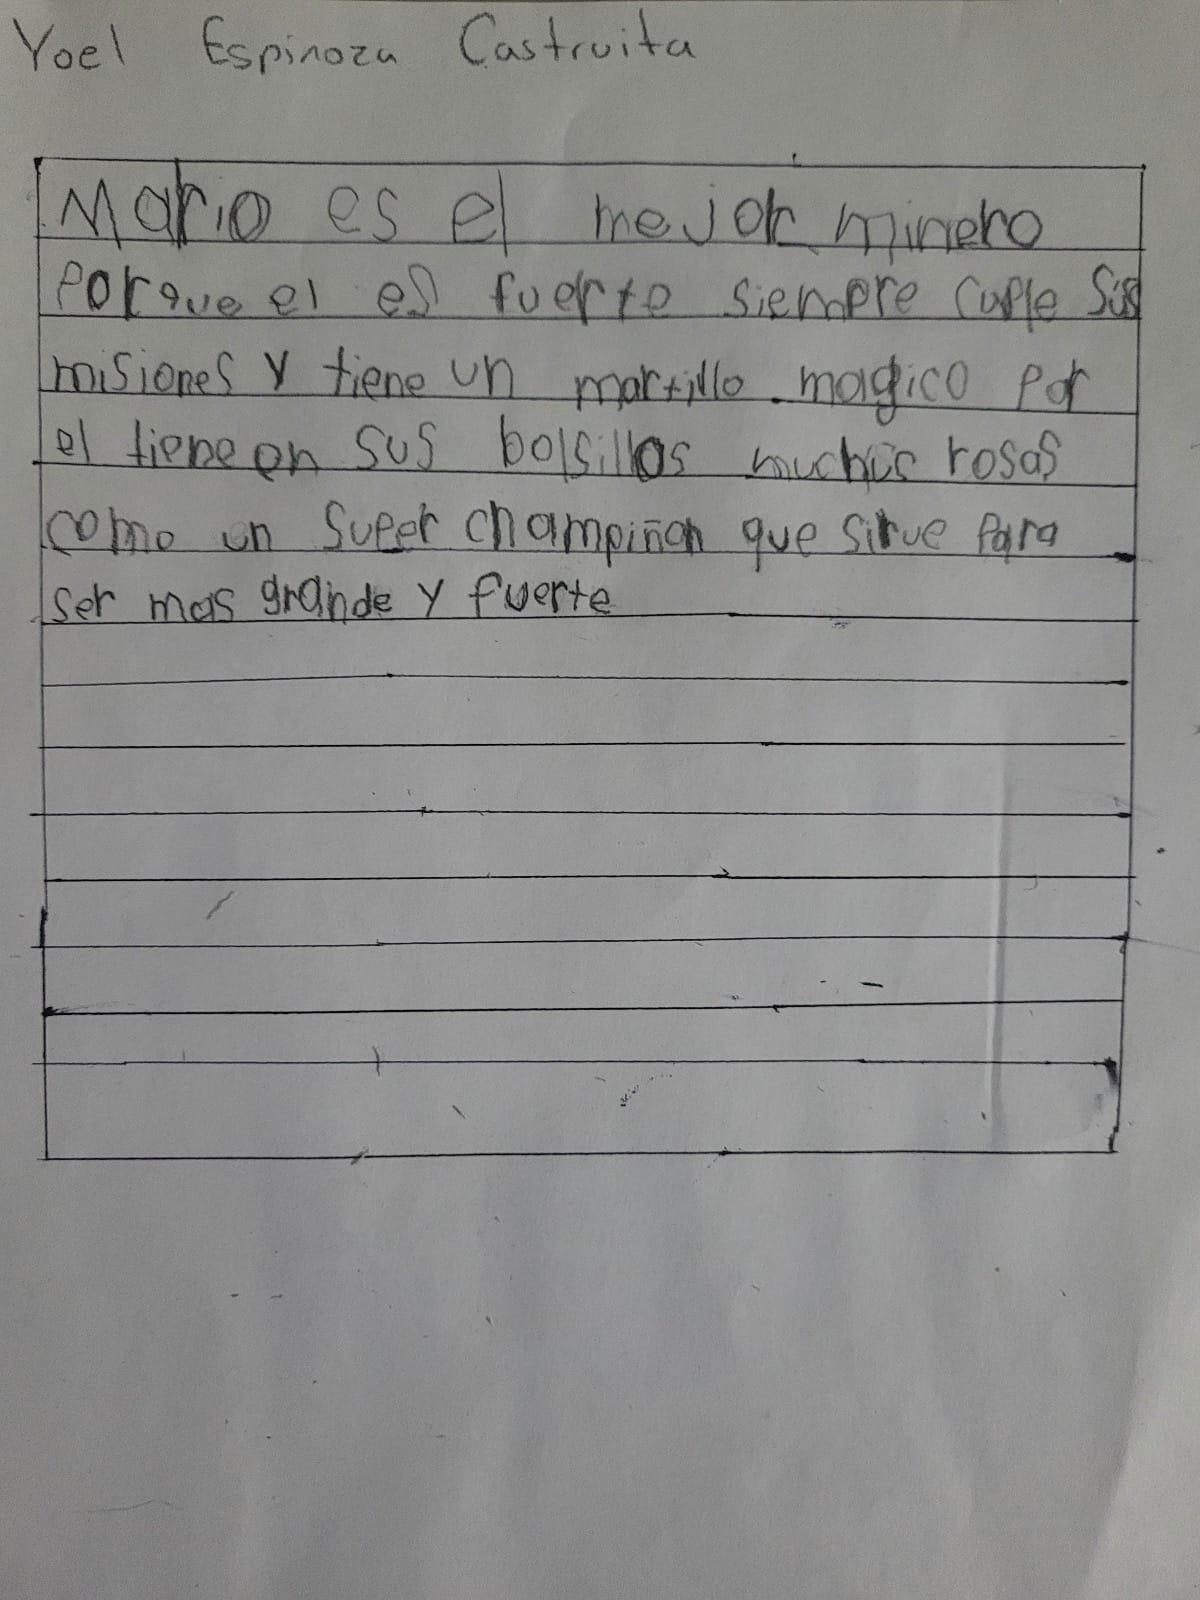 Yoel Espinoza Castruita
Mario es el mejor minero
Porque el es fuerte siempre cuple sus
misiones y tiene un martillo magico por
el tiene en sus bolsillos muchas rosas
como un super champiñon que sirve para
ser mas grande y fuerte